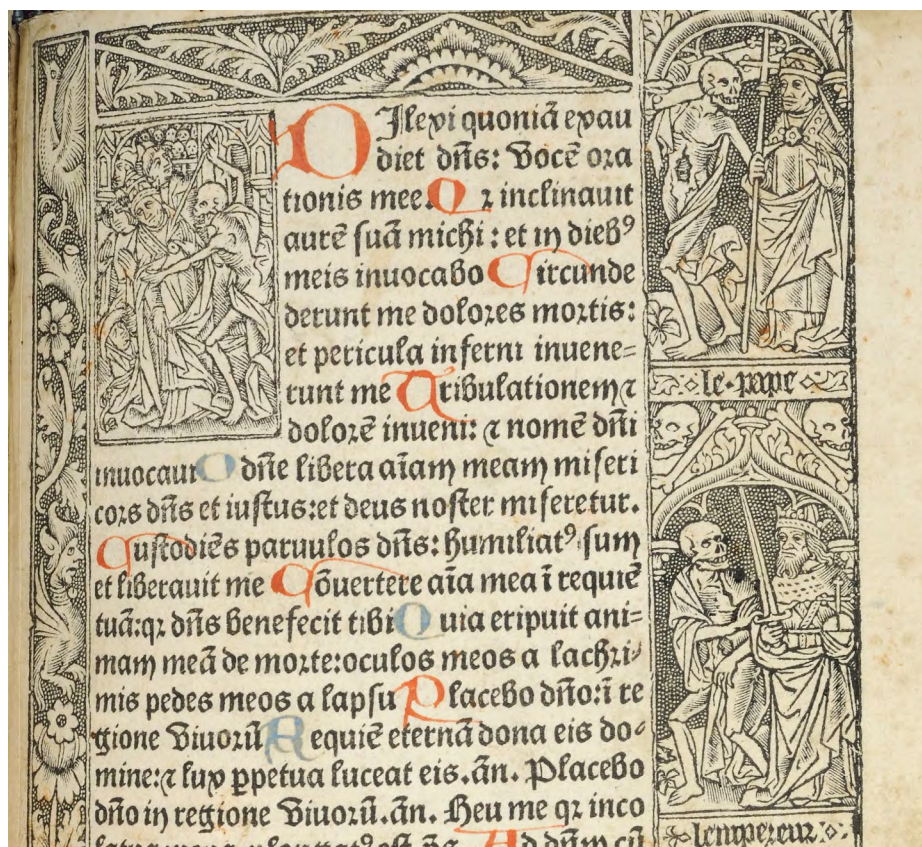 DIlexi quoniā exau
diet dn̄s: vocē ora
tionis mee. Qꝛ inclinauit
aurē suā michi: et in dieb⁹
meis inuocabo Circunde
derunt me dolores mortis:
et pericula inferni inuene=
runt me Tribulationem ⁊
dolorē inueni: ⁊ nomē dn̄i
inuocaui O dn̄e libera aīam meam miseri
cors dn̄s et iustus: et deus noster miseretur.
Custodiēs paruulos dn̄s: humiliat⁹ sum
et liberauit me Cōuertere aīa mea ī requiē
tuā: qꝛ dn̄s benefecit tibi Quia eripuit ani=
mam meā de morte: oculos meos a lachri⸗
mis pedes meos a lapsu Placebo dn̄o: ī re
gione viuorū Requiē eternā dona eis do⸗
mine: ⁊ lux ꝑpetua luceat eis. ān. Placebo
dn̄o in regione viuorū. ān. Heu me qꝛ inco
Ad dn̄m cū
le·pape
lempereur